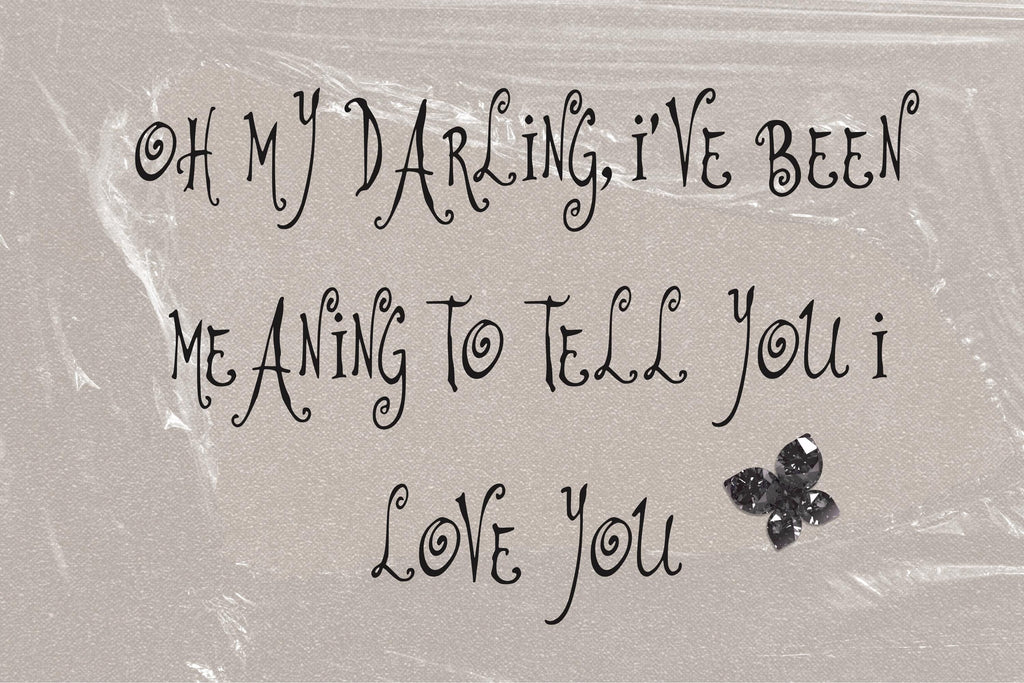 OH MY DARLING, i'VE BEEN
MEANiNG TO TELL YOU i
LOVE YOU